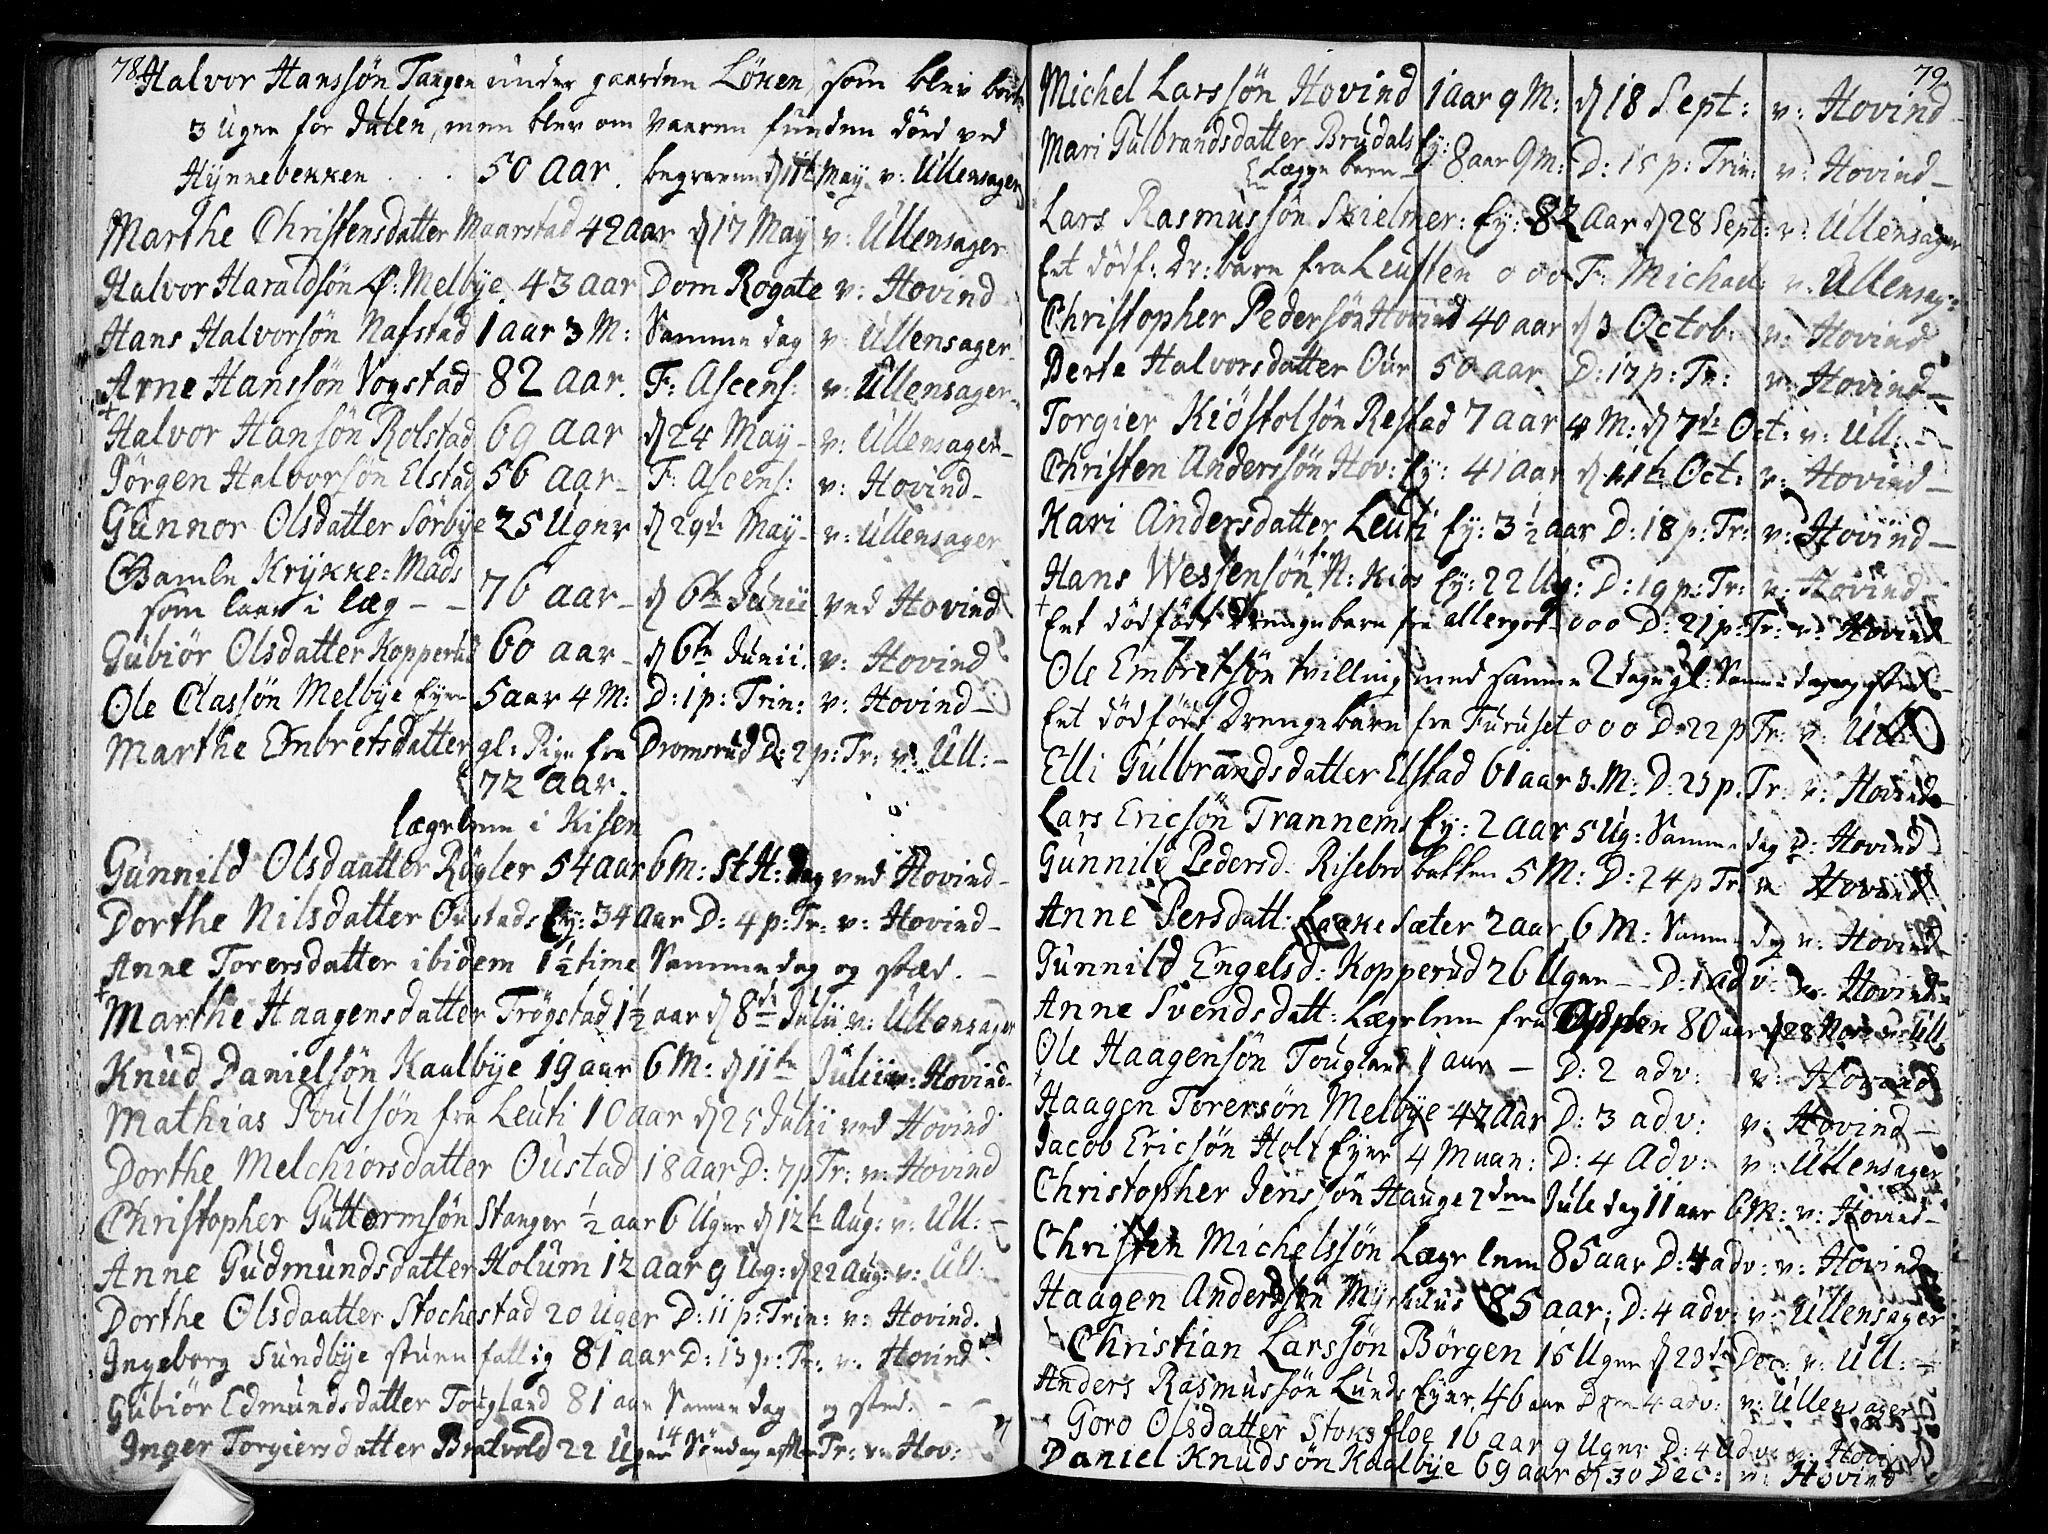 78.
Halvor Hanssøn Tangen under gaarden Løken, som blev borte
3 Uger før Julen, men blev om Vaaren funden død ved
Hÿnnebekken . . . 50 aar. begraven d 11te May v: Ullensager
Marthe Christensdatter Maarstad 42 aar d 17 May v: Ullensager
Halvor Haraldsøn Melbye 43 aar Dom Rogate v: Hovind
Hans Halvorsøn Nafstad 1 aar 3 M: Samme dag v: Ullensager
Arne Hanssøn Vogstad 82 aar. F: Ascens: v: Ullensager
Halvor Hansøn Rolstad 69 aar d 24 May v: Ullensager
Jørgen Halvorsøn Elstad 56 aar F: Ascens: v: Hovind
Gunnor Olsdatter Sørbÿe 25 Uger d 29de May v: Ullensager
Gamle Krÿkke-Mads
som laae i læg - - 76 aar d 6te Junii ved Hovind
Gubiør Olsdatter Kopperud 60 aar d 6te Junii. v: Hovind
Ole Classøn Melbÿe Eyer 5 aar 4 M: D: 1 p: Trin: v: Hovind
Marthe Embretsdatter gl: Pige fra Dromsrud D: 2 p: Tr: v: Ull:
72 aar.
lægelem i Kisen
Gunnild Olsdaatter Røgler 54 aar 6 M: St H: dag ved Hovind
Dorthe Nilsdatter Oustads Ey: 34 aar D: 4 p: Tr: v: Hovind
Anne Torersdatter ibidem 1½ time Samme dag og stæd.
Marthe Haagensdatter Trøgstad 1½ aar d 8de Julii v: Ullensager
Knud Danielsøn Kaalbÿe 19 aar 6 M: d 11te Julii v: Hovind
Mathias Poulsøn fra Leuti 10 aar d 25 Julii ved Hovind
Dorthe Melchiorsdatter Oustad 18 aar D: 7 p Tr: v: Hovind
Christopher Guttormsøn Stanger ½ aar 6 Uger d 12te Aug: v: Ull:
Anne Gudmundsdatter Holum 12 aar 9 Ug: d 22 Aug: v: Ull:
Dorthe Olsdaatter Stochestad 20 Uger D: 11 p: Trin: v: Hovind.
Ingeborg Sundbÿe stuen fattig 81 aar D: 13 p: Tr: v: Hovind
Gubiør Edmundsdatter Tougland 81 aar Samme dag og sted.
Inger Torgiersdatter Bratvold 22 Uger 14 Søndag efter Tr: v: Hov:
79
Michel Larssøn Hovind 1 aar 9 M: d 18 Sept: v: Hovind
Mari Gulbrandsdatter Brudals Ey:
Lægge barn 8 aar 9 M: D: 15 p: Trin: v: Hovind
Lars Rasmussøn Skielmer: Ey: 82 aar d 28 Sept: v: Ullensager
Eet dødf: dr: barn fra Leutten 000 F: Michael: v: Ullensag:
Christopher Pedersøn Hovind 40 aar d 3 Octob: v: Hovind
Berte Halvorsdatter Our 50 aar D: 17 p: Tr: v: Hovind
Torgier Kiøstolsøn Restad 7 aar 4 M: d 7de Oct: v: Ull:
Christen Anderssøn Hov: Ey: 41 aar d 11te Oct: v: Hovind
Kari Andersdatter Leuti Ey: 3½ aar D: 18 p: Tr: v: Hovind
Hans Wessensøn fra N: Kios Ey: 22 Ug: D: 19 p: Tr: v: Hovind
Eet dødfødt Drengebarn fra allergot 000 D: 21 p: Tr: v: Hovind
Ole Embretsøn tvilling med samme 2 dage gl: Samme dag og sted
Eet dødfødt Drengebarn fra Furuset 000 D: 22 p Tr: v: Ull
Elli Gulbrandsdatter Elstad 61 aar 3 M: D: 23 p: Tr: v: Hovind
Lars Ericsøn Trannems Ey: 2 aar 5 Ug: Samme dag v: Hovind
Gunnild Pedersd: Risebro bakken 5 M: D: 24 p Tr: v: Hovind
Anne Persdatt: Laake sæter 2 aar 6 M: Samme dag v: Hovind
Gunnild Engelsd: Kopperud 26 Uger - D: 1 adv: v: Hovind
Anne Svendsdatt: Lægelem fra Opplen 80 aar d 28 Nov: v: Ull
Ole Haagensøn Tougland 1 aar - D: 2 adv: v: Hovind
Haagen Torersøn Melbÿe 47 aar D: 3 adv: v: Hovind
Jacob Ericsøn Holt Eyer 4 Maan: D: 4 Adv: v: Ullensager
Christopher Jenssøn Hauge 2den Juledag 11 aar 6 M: v: Hovind
Christen Michelssøn Lægelem 85 aar D: 4 adv: v: Hovind
Haagen Anderssøn Myrhuus 85 aar, D: 4 adv: v: Ullensager
Christian Larssøn Børgen 15 Uger d 23de Dec: v: Ull:
Anders Rasmussøn Lunds Eyer 46 aar Dom 4 adv: v: Ullensager
Goro Olsdatter Stoksfloe 16 aar 9 Uger D: 4 adv: v: Hovind
Daniel Knudsøn Kaalbÿe 69 aar d 30 Dec: v: Hovind